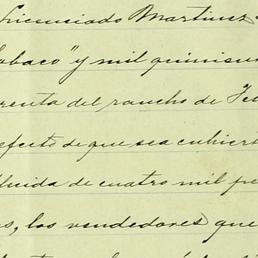 Licenciado Martinez
abaco" y mil quinien
renta del rancho de
efecto de que sea cubier
tuida de cuatro mil pe
os, los vendedores que